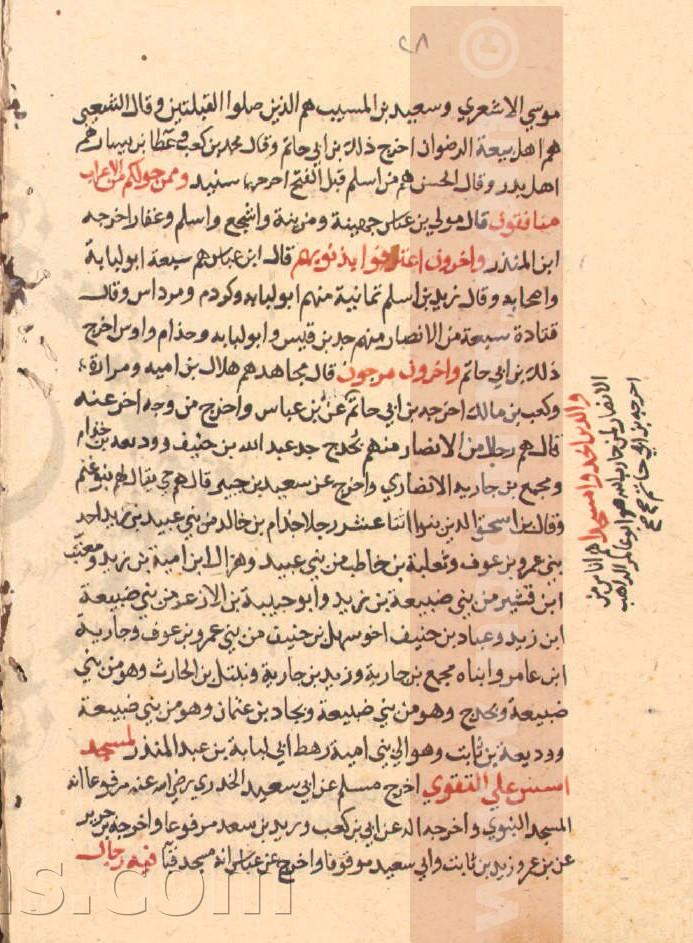 ٢٨
موسي الاشعري وسعيد بن المسيب هم الذين صلوا القبلتين وقال الشعبي
هم اهل بيعة الرضوان اخرج ذلك بن ابي حاتم وقال محمد بن كعب وعطا بن يسار هم
اهل بدر وقال الحسن هم من اسلم قبل الفتح اخرجها سنيد وممن حولكم من الاعراب
منافقون قال مولي بن عباس جهينة ومزينة واشجع واسلم وغفار اخرجه
ابن المنذر واخرون اعترفوا بذنوبهم قال ابن عباس هم سبعة ابولبابة
واصحابه وقال زيد بن اسلم ثمانية منهم ابولبابه وكردم ومرداس وقال
قتادة سبعة من الانصار منهم جد بن قيس وابولبابه وحذام واوس اخرج
ذلك بن ابي حاتم واخرون مرجون قال مجاهد هم هلال بن اميه ومرارة
وكعب بن مالك اخرجه بن ابي حاتم عن بن عباس واخرج من وجه اخر عنه
قال هم رجال من الانصار منهم بحدج جد عبد الله بن حنيف ووديعة بن خذام
ومجمع بن جارية الانصاري واخرج عن سعيد بن جبير قال هم حي يقال لهم بنو غنم
وقال بن اسحق الذين بنوا اثنا عشر رجلا خذام بن خالد من بني عبيد بن زيد احد
بني عمرو بن عوف وثعلبة بن حاطب من بني عبيد وهزال ابن امية بن زيد ومعتب
ابن قشير من بني ضبيعة بن زيد وابو حبيبة بن الازعر من بني ضبيعة
ابن زيد وعباد بن حنيف اخو سهل بن حنيف من بني عمرو بن عوف وجارية
ابن عامر وابناه مجمع بن جارية وزيد بن جارية ونبتل بن الحارث وهو من بني
ضبيعة وبحدج وهو من بني ضبيعة وبجاد بن عثمان وهو من بني ضبيعة
ووديعة بن ثابت وهو الي بني امية رهط ابي لبابة بن عبد المنذر لمسجد
اسس علي التقوي اخرج مسلم عن ابي سعيد الخدري رضي الله عنه مرفوعا انه
المسجد النبوي واخرجه احمد عن ابي بن كعب وسهل بن سعد مرفوعا واخرجه بن جرير
عن بن عمر وزيد بن ثابت وابي سعيد موقوفا واخرج عن بن عباس انه مسجد قبا فيه رجال
والذين اتخذوا مسجدا هم اناس من
الانصار
اخرجه بن ابي حاتم